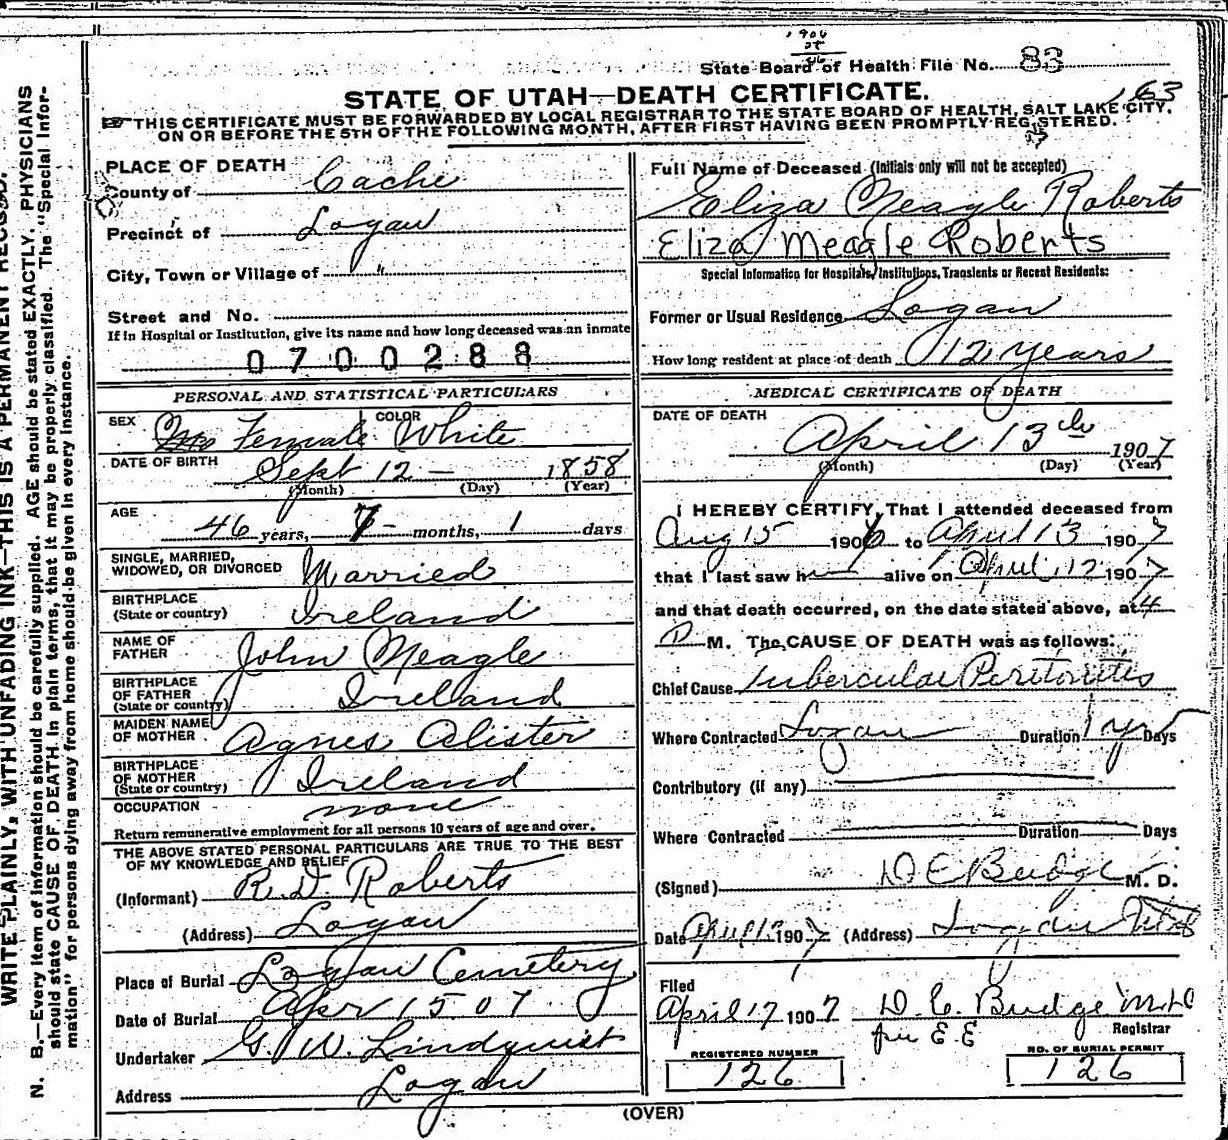 State Board of Health File No. 83
163
STATE OF UTAH—DEATH CERTIFICATE.
☞THIS CERTIFICATE MUST BE FORWARDED BY LOCAL REGISTRAR TO THE STATE BOARD OF HEALTH, SALT LAKE CITY,
ON OR BEFORE THE 5TH OF THE FOLLOWING MONTH, AFTER FIRST HAVING BEEN PROMPTLY REGISTERED.
PLACE OF DEATH
County of Cache
Precinct of Logan
City, Town or Village of "
Street and No.
If in Hospital or Institution, give its name and how long deceased was an inmate
0700288
PERSONAL AND STATISTICAL PARTICULARS
SEX Female COLOR White
DATE OF BIRTH Sept 12 — 1858
(Month) (Day) (Year)
AGE 46 years, 7 months, 1 days
SINGLE, MARRIED,
WIDOWED, OR DIVORCED Married
BIRTHPLACE
(State or country) Ireland
NAME OF
FATHER John Meagle
BIRTHPLACE
OF FATHER
(State or country) Ireland
MAIDEN NAME
OF MOTHER Agnes Alister
BIRTHPLACE
OF MOTHER
(State or country) Ireland
OCCUPATION none
Return remunerative employment for all persons 10 years of age and over.
THE ABOVE STATED PERSONAL PARTICULARS ARE TRUE TO THE BEST
OF MY KNOWLEDGE AND BELIEF
(Informant) R. D. Roberts
(Address) Logan
Place of Burial Logan Cemetery
Date of Burial Apr 15 07
Undertaker G. W. Lindquist
Address Logan
Full Name of Deceased (Initials only will not be accepted)
Eliza Meagle Roberts
Eliza Meagle Roberts
Special Information for Hospitals, Institutions, Transients or Recent Residents:
Former or Usual Residence Logan
How long resident at place of death 12 years
MEDICAL CERTIFICATE OF DEATH
DATE OF DEATH
April 13th 1907
(Month) (Day) (Year)
I HEREBY CERTIFY, That I attended deceased from
Aug 15 1906 to April 13 1907
that I last saw h alive on April 12 1907
and that death occurred, on the date stated above, at 4
P M. The CAUSE OF DEATH was as follows:
Chief Cause Tubercular Peritonitis
Where Contracted Logan Duration 1 yr Days
Contributory (if any)
Where Contracted Duration Days
(Signed) D E Budge M. D.
Date April 13 1907 (Address) Logan Utah
Filed
April 17 1907 D. C. Budge M.D
per E. E Registrar
REGISTERED NUMBER
126
NO. OF BURIAL PERMIT
126
(OVER)
WRITE PLAINLY, WITH UNFADING INK—THIS IS A PERMANENT RECORD.
N. B.—Every item of information should be carefully supplied. AGE should be stated EXACTLY. PHYSICIANS
should state CAUSE OF DEATH in plain terms, that it may be properly classified. The "Special Infor-
mation" for persons dying away from home should be given in every instance.